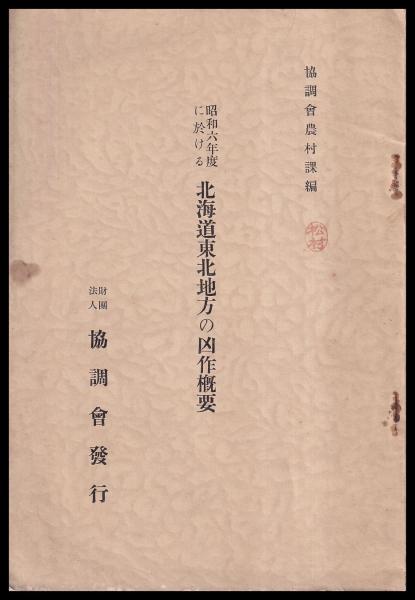 協調會農村課編
松村
昭和六年度
に於ける
北海道東北地方の凶作概要
財團
法人
協調會發行